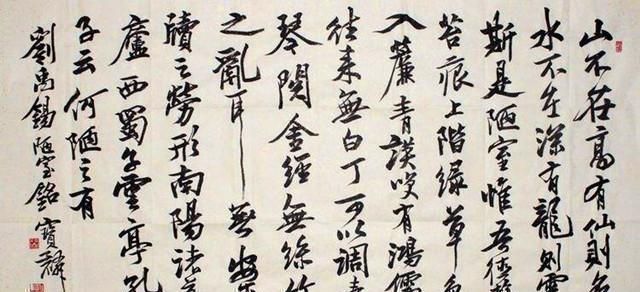 山不在高有仙則名
水不在深有龍則靈
斯是陋室惟吾德
苔痕上階緑草色
入簾青談笑有鴻儒
往来無白丁可以調素
琴閱金經無絲竹
之亂耳無案
牘之勞形南陽諸葛
廬西蜀子雲亭孔
子云何陋之有
劉禹錫陋室銘 寶麟